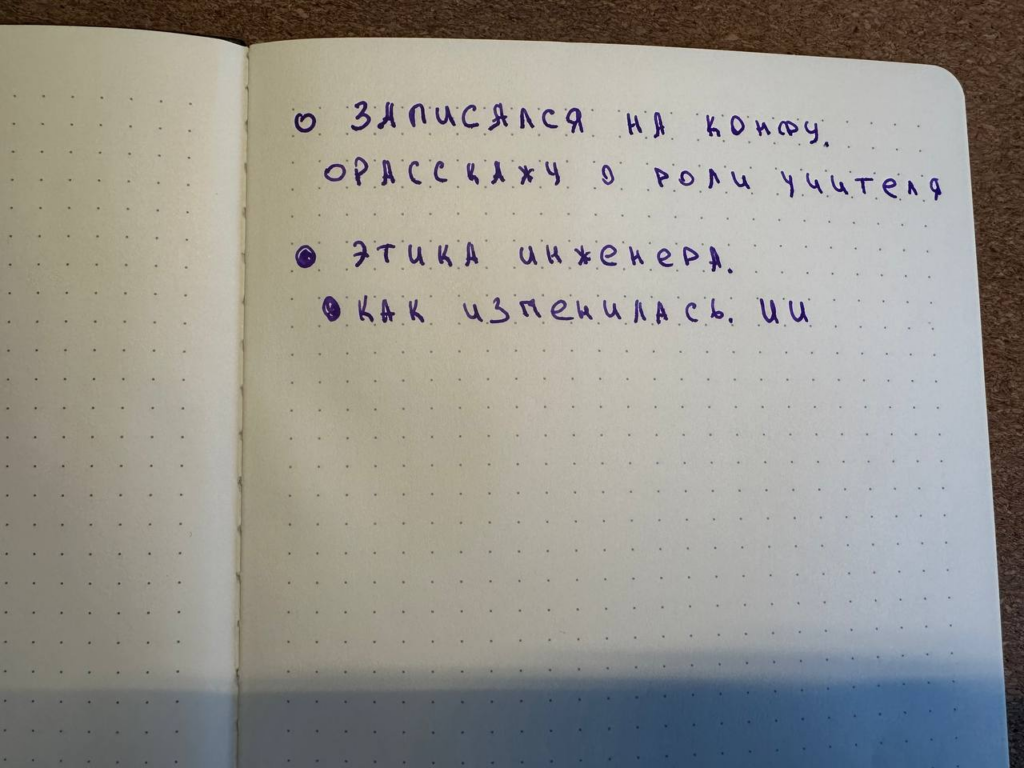 ○ ЗАПИСАЛСЯ НА КОНФУ.
○ РАССКАЖУ О РОЛИ УЧИТЕЛЯ
● ЭТИКА ИНЖЕНЕРА.
● КАК ИЗМЕНИЛАСЬ. ИИ